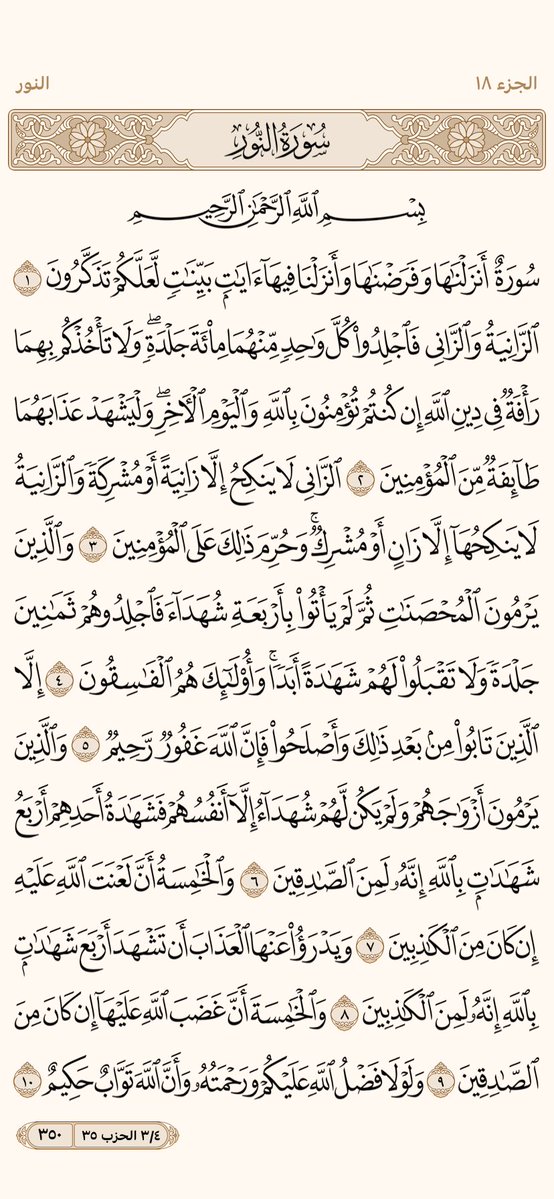 الجزء ١٨
النور
سُورَةُ النُّورِ
بِسْمِ ٱللَّهِ ٱلرَّحْمَٰنِ ٱلرَّحِيمِ
سُورَةٌ أَنزَلْنَٰهَا وَفَرَضْنَٰهَا وَأَنزَلْنَا فِيهَآ ءَايَٰتٍۭ بَيِّنَٰتٍ لَّعَلَّكُمْ تَذَكَّرُونَ ١
ٱلزَّانِيَةُ وَٱلزَّانِى فَٱجْلِدُوا۟ كُلَّ وَٰحِدٍ مِّنْهُمَا مِا۟ئَةَ جَلْدَةٍ ۖ وَلَا تَأْخُذْكُم بِهِمَا
رَأْفَةٌ فِى دِينِ ٱللَّهِ إِن كُنتُمْ تُؤْمِنُونَ بِٱللَّهِ وَٱلْيَوْمِ ٱلْءَاخِرِ ۖ وَلْيَشْهَدْ عَذَابَهُمَا
طَآئِفَةٌ مِّنَ ٱلْمُؤْمِنِينَ ٢ ٱلزَّانِى لَا يَنكِحُ إِلَّا زَانِيَةً أَوْ مُشْرِكَةً وَٱلزَّانِيَةُ
لَا يَنكِحُهَآ إِلَّا زَانٍ أَوْ مُشْرِكٌ ۚ وَحُرِّمَ ذَٰلِكَ عَلَى ٱلْمُؤْمِنِينَ ٣ وَٱلَّذِينَ
يَرْمُونَ ٱلْمُحْصَنَٰتِ ثُمَّ لَمْ يَأْتُوا۟ بِأَرْبَعَةِ شُهَدَآءَ فَٱجْلِدُوهُمْ ثَمَٰنِينَ
جَلْدَةً وَلَا تَقْبَلُوا۟ لَهُمْ شَهَٰدَةً أَبَدًا ۚ وَأُو۟لَٰٓئِكَ هُمُ ٱلْفَٰسِقُونَ ٤ إِلَّا
ٱلَّذِينَ تَابُوا۟ مِنۢ بَعْدِ ذَٰلِكَ وَأَصْلَحُوا۟ فَإِنَّ ٱللَّهَ غَفُورٌ رَّحِيمٌ ٥ وَٱلَّذِينَ
يَرْمُونَ أَزْوَٰجَهُمْ وَلَمْ يَكُن لَّهُمْ شُهَدَآءُ إِلَّآ أَنفُسُهُمْ فَشَهَٰدَةُ أَحَدِهِمْ أَرْبَعُ
شَهَٰدَٰتٍۭ بِٱللَّهِ إِنَّهُۥ لَمِنَ ٱلصَّٰدِقِينَ ٦ وَٱلْخَٰمِسَةُ أَنَّ لَعْنَتَ ٱللَّهِ عَلَيْهِ
إِن كَانَ مِنَ ٱلْكَٰذِبِينَ ٧ وَيَدْرَؤُا۟ عَنْهَا ٱلْعَذَابَ أَن تَشْهَدَ أَرْبَعَ شَهَٰدَٰتٍۭ
بِٱللَّهِ إِنَّهُۥ لَمِنَ ٱلْكَٰذِبِينَ ٨ وَٱلْخَٰمِسَةَ أَنَّ غَضَبَ ٱللَّهِ عَلَيْهَآ إِن كَانَ مِنَ
ٱلصَّٰدِقِينَ ٩ وَلَوْلَا فَضْلُ ٱللَّهِ عَلَيْكُمْ وَرَحْمَتُهُۥ وَأَنَّ ٱللَّهَ تَوَّابٌ حَكِيمٌ ١٠
٣/٤ الحزب ٣٥
٣٥٠